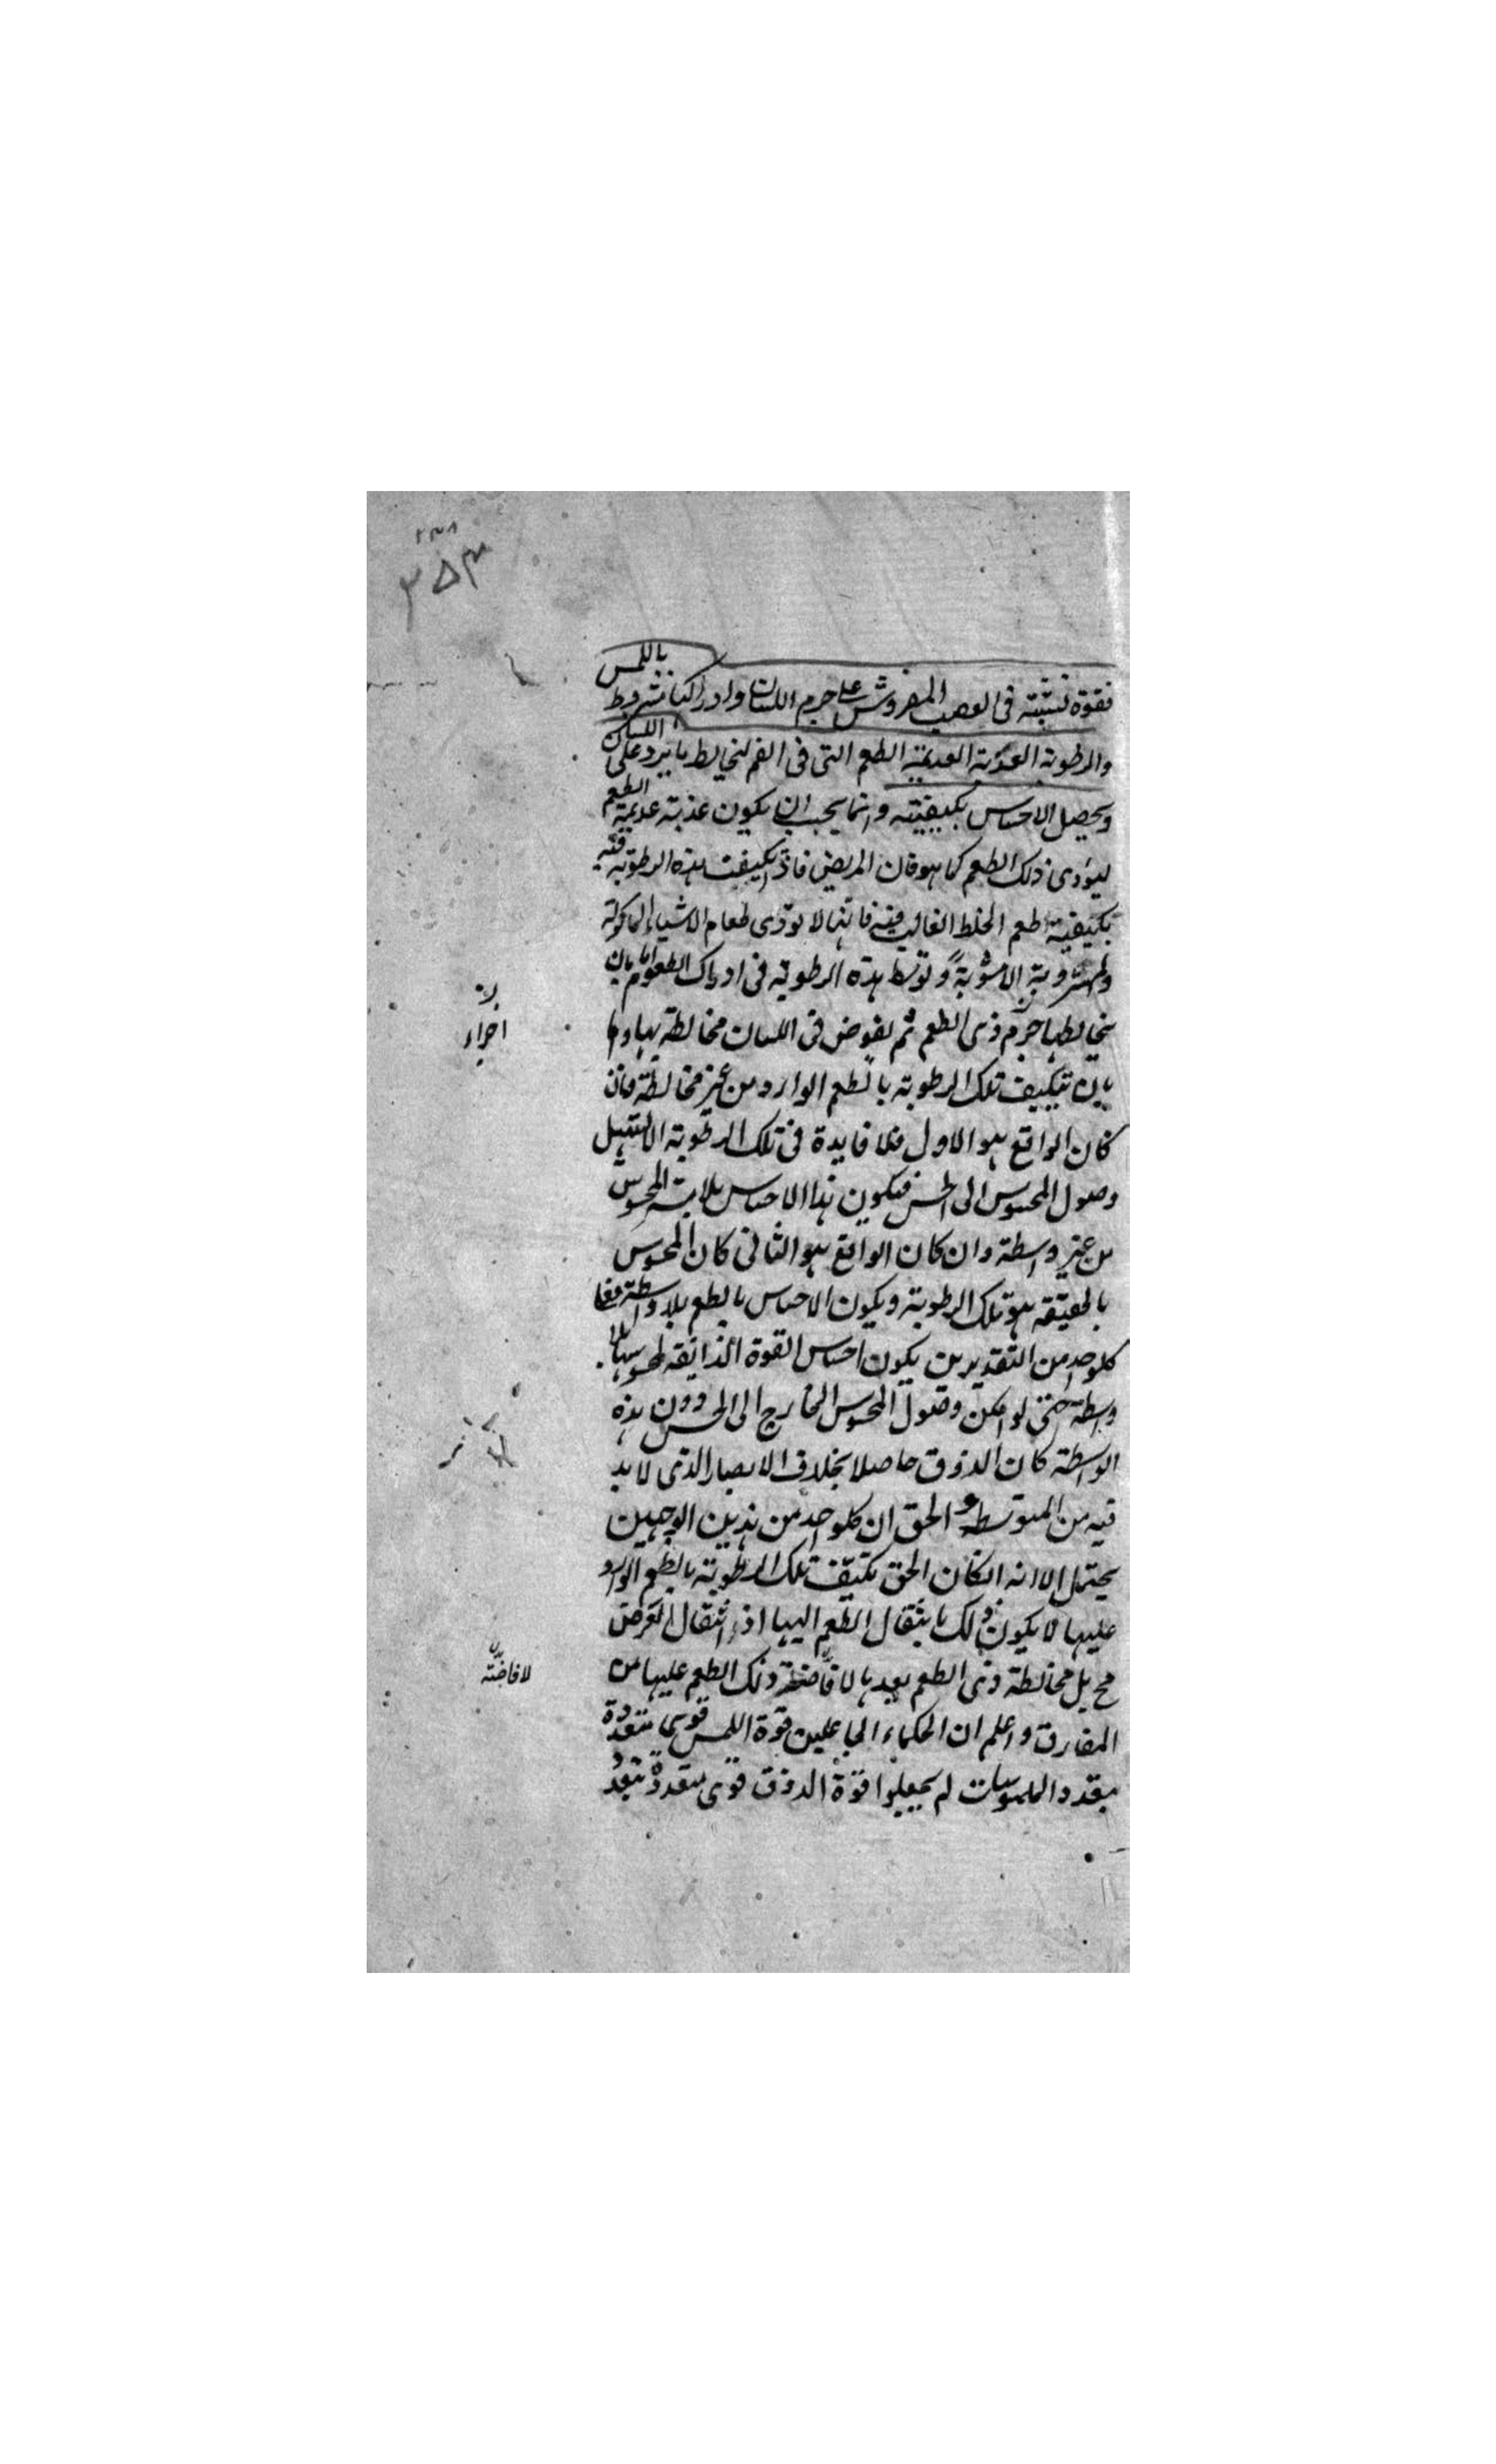 ٢٣٨
٣٥٣
فقوة منبثة فى العصب المفروش على جرم اللسان وادراكها مشروط باللمس
والرطوبة العذبة العديمة الطعم التى فى الفم لتخالط ما يرد على اللسان
ويحصل الاحساس بكيفيته وانما يجب ان يكون عذبة عديمة الطعم
ليؤدى ذلك الطعم كما هو فان المريض فاذا تكيفت هذه الرطوبة فيه
بكيفية طعم الخلط الغالب فيه فانها لا تؤدى طعام الاشياء الماكولة
والمشروبة الا مشوبة وتوسط هذه الرطوبة فى ادراك الطعوم اما بان
يخالطها جرم ذى الطعم ثم يغوض فى اللسان مخالطة بها واما
بان تتكيف تلك الرطوبة بالطعم الوارد من غير مخالطة فان
كان الواقع هو الاول فلا فايدة فى تلك الرطوبة الا تسهيل
وصول المحسوس الى الحس فيكون هذا الاحساس بملابسة المحسوس
من غير واسطة وان كان الواقع هو الثانى كان المحسوس
بالحقيقه هو تلك الرطوبة ويكون الاحساس بالطعم بلا واسطة فعلى
كلواحد من التقديرين يكون احساس القوة الذايقه لمحسوسها بلا
واسطة حتى لو امكن وصول المحسوس الخارج الى الحس دون هذه
الواسطة كان الذوق حاصلا بخلاف الابصار الذى لا بد
فيه من المتوسط و الحق ان كلواحد من هذين الوجهين
يحتمل الا انه انكان الحق تكيف تلك الرطوبة بالطعم الوارد
عليها لا يكون ذلك بانتقال الطعم اليها اذ انتقال العرض
مح بل مخالطة ذى الطعم يعدها لافاضة ذلك الطعم عليها من
المفارق واعلم ان الحكماء الجاعلين قوة اللمس قوى متعددة
بتعدد الملموسات لم يجعلوا قوة الذوق قوى متعددة بتعدد
اجزاء
لافاضته